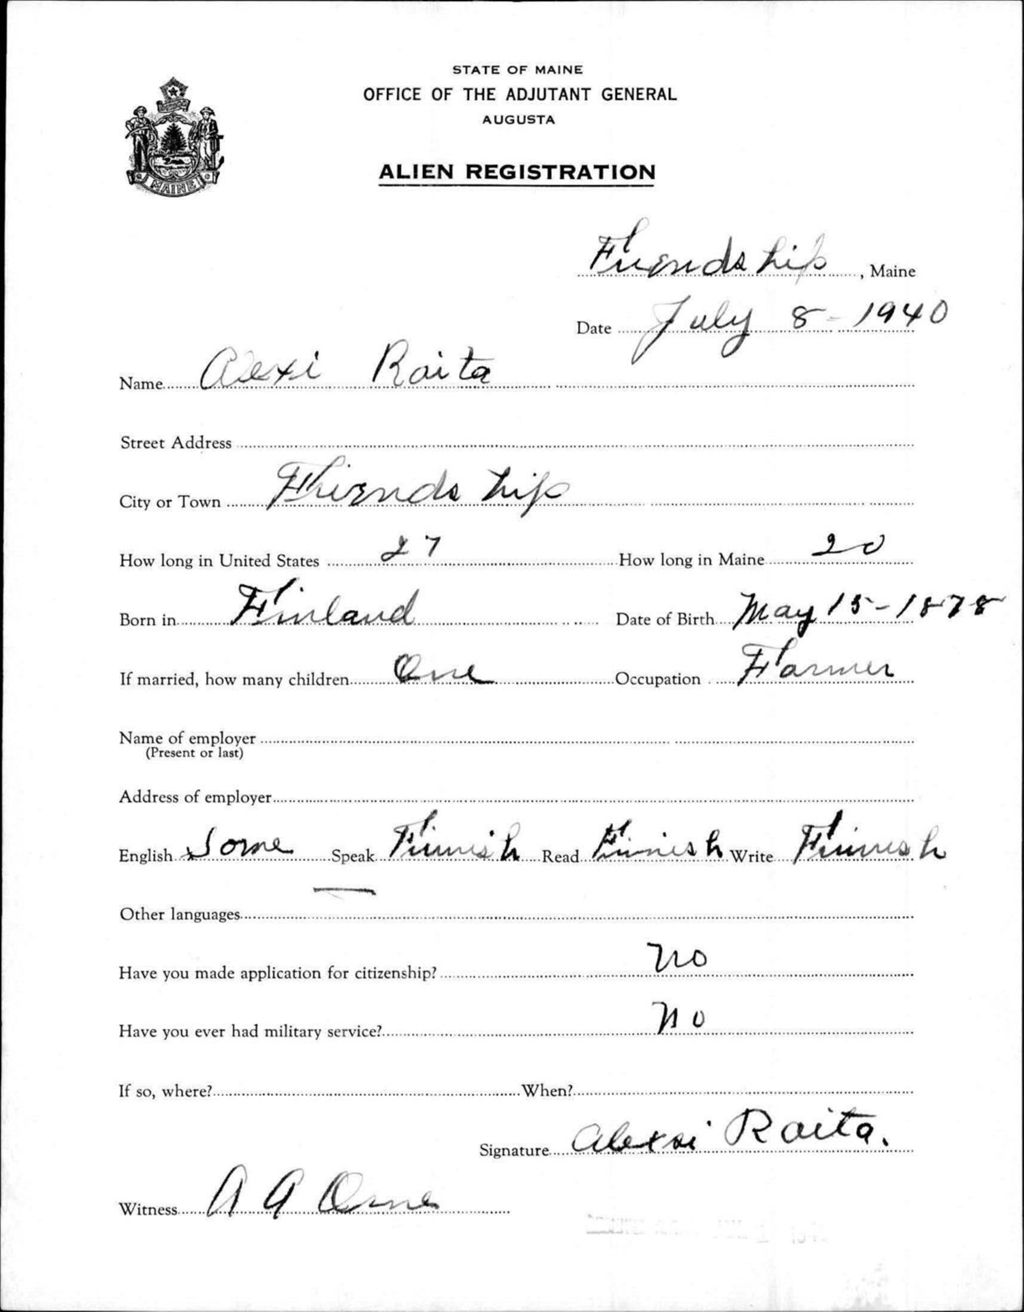 STATE OF MAINE
OFFICE OF THE ADJUTANT GENERAL
AUGUSTA
ALIEN REGISTRATION
MAINE
Friendship, Maine
Date July 8-1940
Name Alexi Raita
Street Address
City or Town Friendship
How long in United States 27 How long in Maine 20
Born in Finland Date of Birth May 15-1878
If married, how many children One Occupation Farmer
Name of employer
(Present or last)
Address of employer
English Some Speak Finnish Read Finnish Write Finnish
Other languages
Have you made application for citizenship? No
Have you ever had military service? No
If so, where? When?
Signature Aleksi Raita.
Witness A A Orne